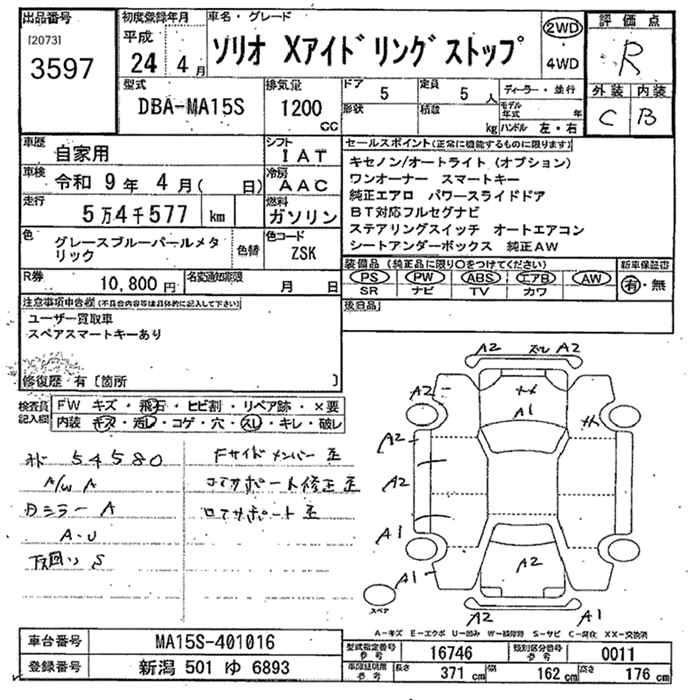 出品番号
[2073]
3597
初度登録年月
平成
24 4 月
車名・グレード
ソリオ Xアイドリングストップ
2WD
・
4WD
評価点
R
外装 内装
C B
型式
DBA-MA15S
排気量
1200
CC
ドア
5
定員
5 人
形状
積載
kg
ディーラー・並行
モデル
年式 年
ハンドル 左・右
車歴
自家用
シフト
IAT
車検
令和 9年 4月( 日)
冷房
AAC
走行
5万4千577 km
燃料
ガソリン
色
グレースブルーパールメタ
リック
色替
色コード
ZSK
R券
10,800 円
名変通知期限
月 日
セールスポイント(正常に機能するものに限ります)
キセノン/オートライト(オプション)
ワンオーナー スマートキー
純正エアロ パワースライドドア
BT対応フルセグナビ
ステアリングスイッチ オートエアコン
シートアンダーボックス 純正AW
装備品(純正品に限り○をつけてください)
PS PW ABS エアB AW
SR ナビ TV カワ
新車保証書
有・無
後日品
注意事項申告欄(不具合内容等は具体的に記入して下さい)
ユーザー買取車
スペアスマートキーあり
修復歴 有〔箇所 〕
検査員
記入欄
FW キズ・飛石・ヒビ割・リペア跡・×要
内装 キズ・汚レ・コゲ・穴・スレ・キレ・破レ
オド 54580
A/W A
カミラー A
A-U
下回り S
Fサイドメンバー 歪
コアサポート修正 歪
ロアサポート 歪
A2 ズレ A2
A2
A1
A2
A2
A1
A1
A2
A2
A1
スペア
A-キズ E-エクボ U-凹み W-補修跡 S-サビ C-腐化 XX-交換済
車台番号
MA15S-401016
登録番号
新潟 501 ゆ 6893
型式指定番号
参考
16746
類別区分番号
参考
0011
車検証記載
参考
長さ
371 cm
幅
162 cm
高さ
176 cm